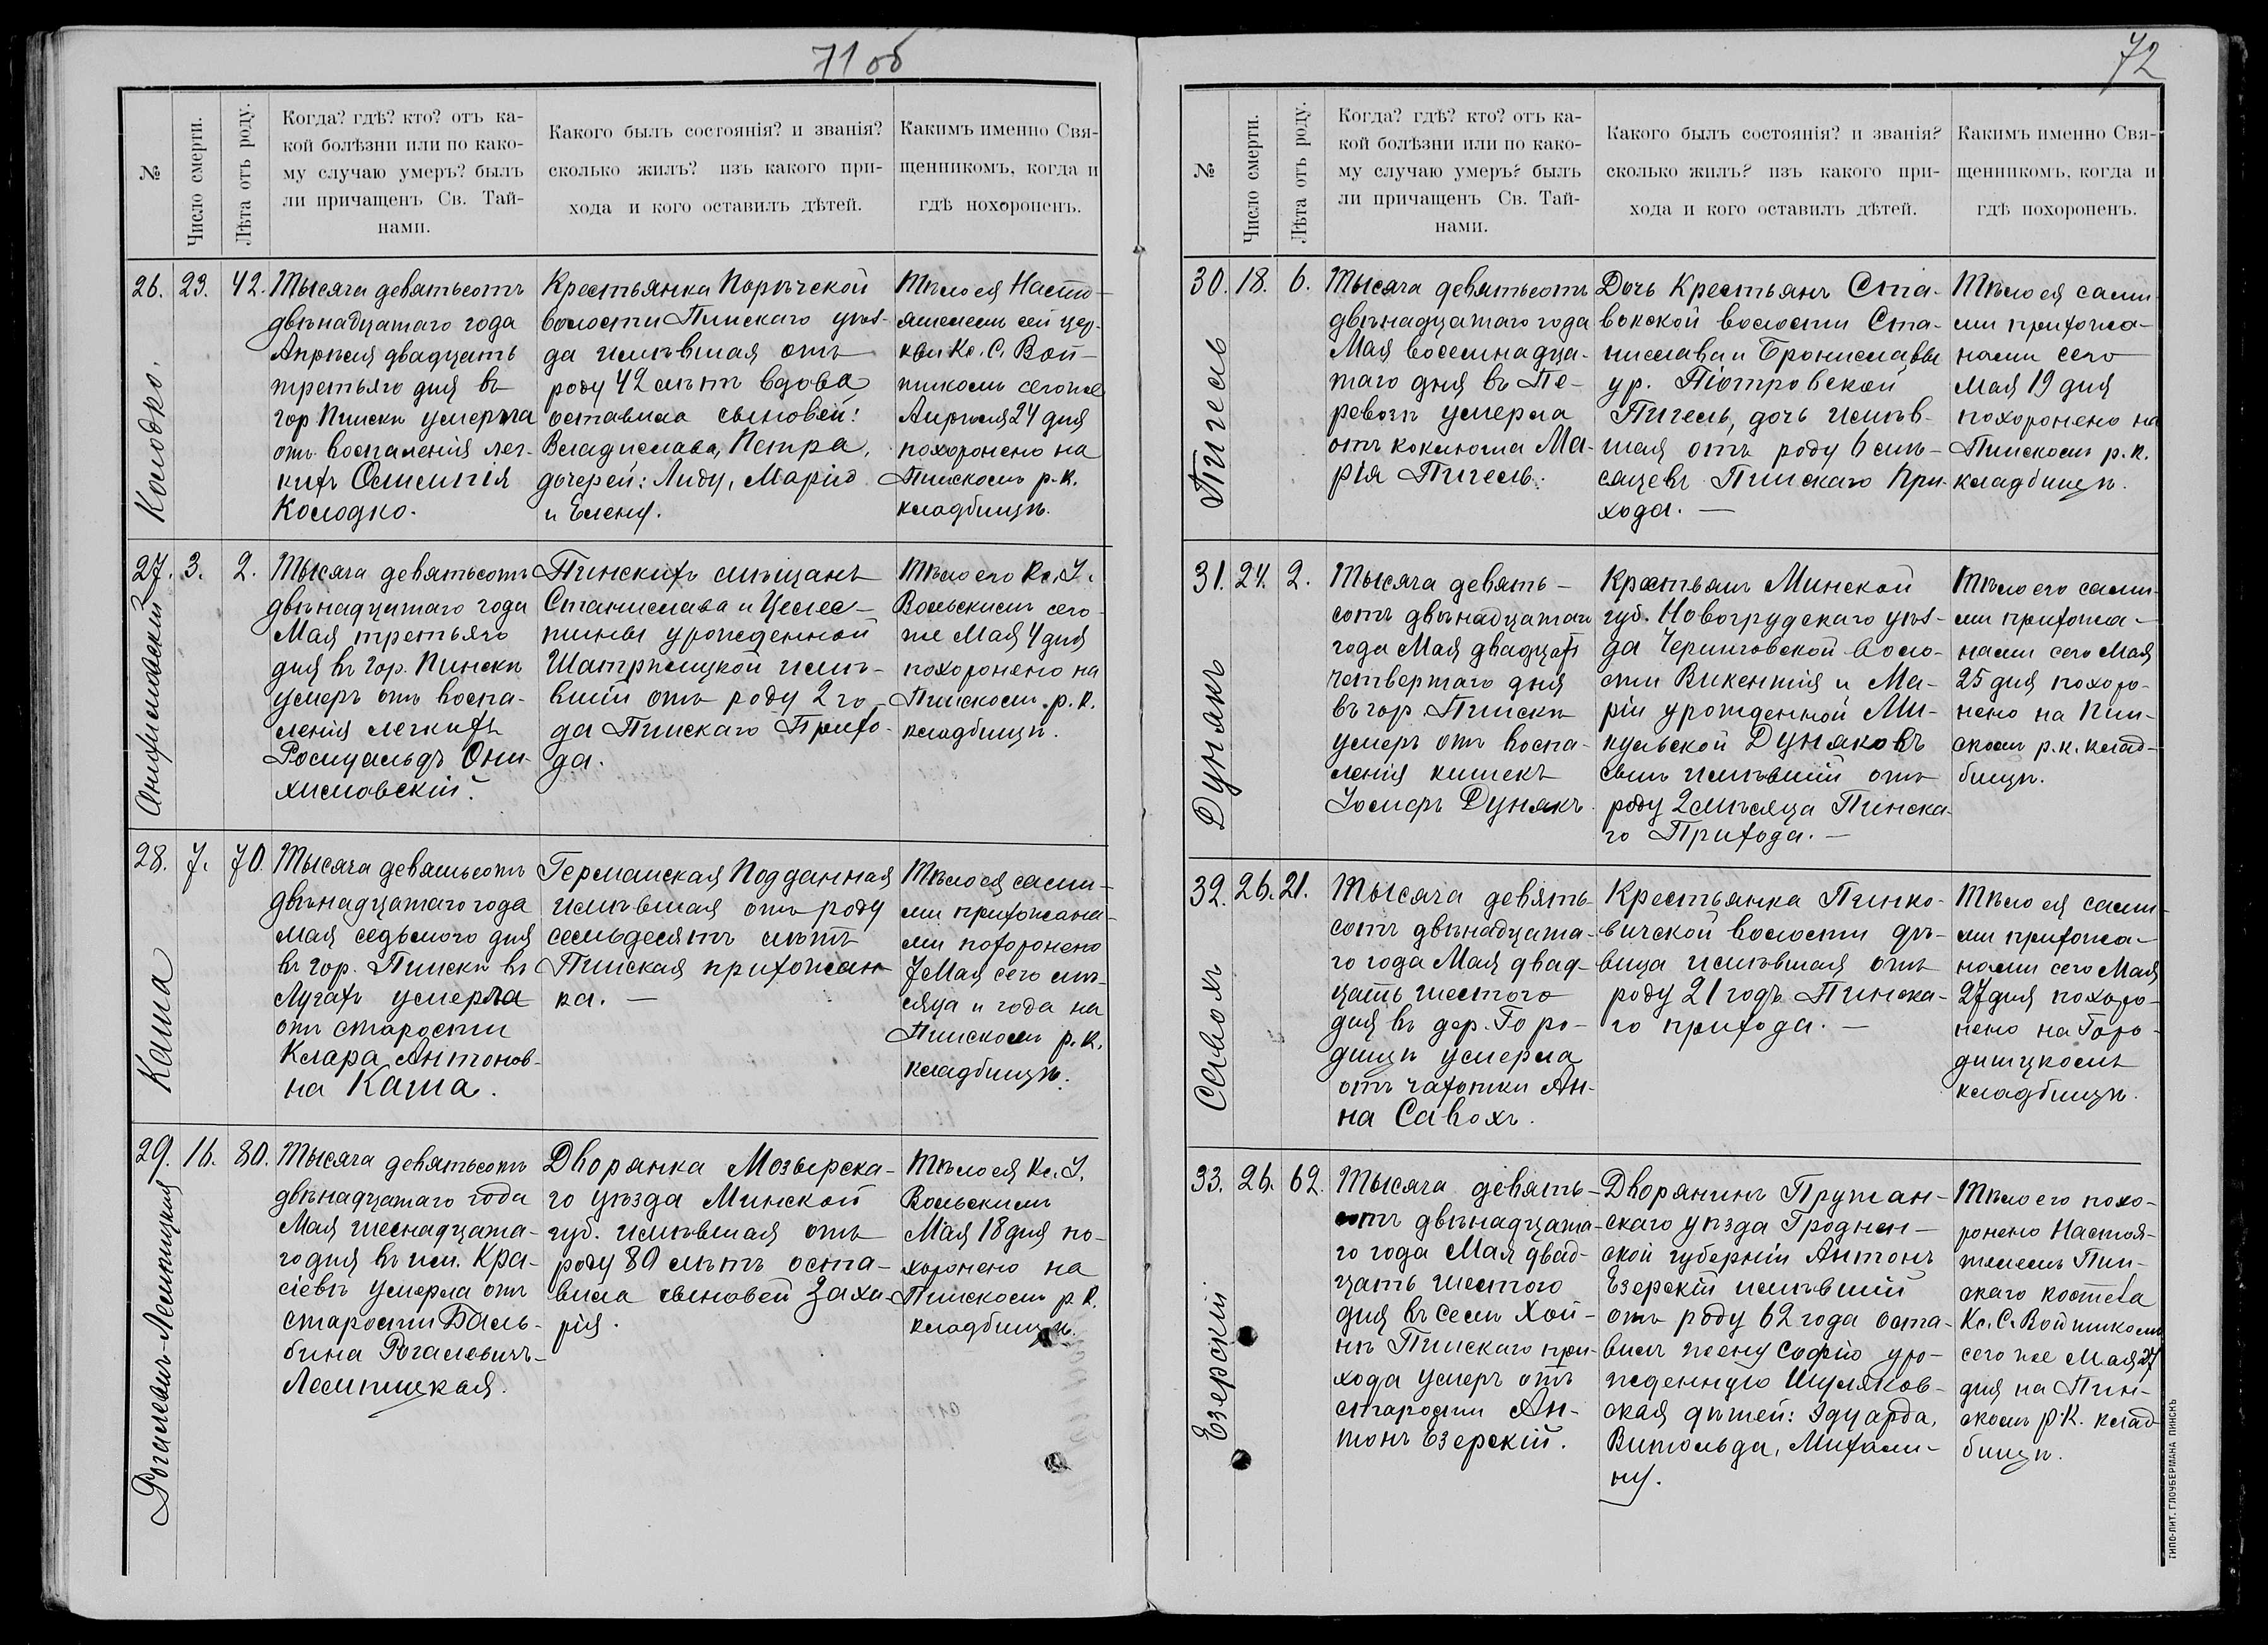 71 об
№
Число смерти.
Лѣта отъ роду.
Когда? гдѣ? кто? отъ ка-
кой болѣзни или по како-
му случаю умеръ? былъ
ли причащенъ Св. Тай-
нами.
Какого былъ состоянія? и званія?
сколько жилъ? изъ какого при-
хода и кого оставилъ дѣтей.
Какимъ именно Свя-
щенникомъ, когда и
гдѣ похороненъ.
26.
Колодко.
23.
42.
Тысяча девятьсотъ
двѣнадцатаго года
Апрѣля двадцать
третьяго дня въ
гор Пинскѣ умерла
отъ воспаленія лег-
кихъ
Колодко.
Крестьянка Порѣчской
волости Пинскаго уѣз-
да имѣвшая отъ
роду 42 лѣтъ вдова
оставила сыновей:
Владислава, Петра,
дочерей: Лиду, Марію
и Елену.
Тѣло ея Насто-
ятелемъ сей цер-
кви Кс. С. Вой-
тикомъ сегоже
Апрѣля 24 дня
похоронено на
Пинскомъ р.-к.
кладбищѣ.
27.
Онихимовскій
3.
2.
Тысяча девятьсотъ
двѣнадцатаго года
Мая третьяго
дня въ гор. Пинскѣ
умеръ отъ воспа-
ленія легкихъ
Ромуальдъ Они-
химовскій.
Пинскихъ мѣщанъ
Станислава и Целес-
тины урожденной
имѣ-
вшій отъ роду 2 го-
да Пинскаго Прихо-
да.
Тѣло его Кс. I.
Вольскимъ сего-
же Мая 4 дня
похоронено на
Пинскомъ р. к.
кладбищѣ.
28.
Каша
7.
70.
Тысяча девятьсотъ
двѣнадцатаго года
мая седьмого дня
въ гор. Пинскѣ въ
Лугахъ умерла
отъ старости
Клара Антонов-
на Каша.
Германская Подданная
имѣвшая отъ роду
семьдесятъ лѣтъ
Пинская прихожан-
ка. —
Тѣло ея сами-
ми прихожана-
ми похоронено
7 Мая сего мѣ-
сяца и года на
Пинскомъ р. к.
кладбищѣ.
29.
Рогалевичъ-Лемпицкая
16.
80.
Тысяча девятьсотъ
двѣнадцатаго года
Мая шеснадцата-
го дня въ им. Кра-
сіевѣ умерла отъ
старости Баль-
бина Рогалевичъ-
Лемпицкая.
Дворянка Мозырска-
го уѣзда Минской
губ. имѣвшая отъ
роду 80 лѣтъ оста-
вила сыновей Заха-
рія.
Тѣло ея Кс. I.
Вольскимъ
Мая 18 дня по-
хоронено на
Пинскомъ р. к.
кладбищѣ.
72
№
Число смерти.
Лѣта отъ роду.
Когда? гдѣ? кто? отъ ка-
кой болѣзни или по како-
му случаю умеръ? былъ
ли причащенъ Св. Тай-
нами.
Какого былъ состоянія? и званія?
сколько жилъ? изъ какого при-
хода и кого оставилъ дѣтей.
Какимъ именно Свя-
щенникомъ, когда и
гдѣ похороненъ.
30.
Пигель
18.
6.
Тысяча девятьсотъ
двѣнадцатаго года
Мая восемнадца-
таго дня въ Пе-
ревозѣ умерла
отъ коклюша Ма-
рія Пигель.
Дочь Крестьянъ Ста-
вокской волости Ста-
нислава и Брониславы
ур. Піотровской
Пигель, дочь имѣв-
шая отъ роду 6 мѣ-
сяцевъ Пинскаго При-
хода. —
Тѣло ея сами-
ми прихожа-
нами сего
Мая 19 дня
похоронено на
Пинскомъ р. к.
кладбищѣ.
31.
Дунякъ
24.
2.
Тысяча девять-
сотъ двѣнадцатаго
года Мая двадцать
четвертаго дня
въ гор. Пинскѣ
умеръ отъ воспа-
ленія кишекъ
Іосифъ Дунякъ
Крестьянъ Минской
губ. Новогрудскаго уѣз-
да воло-
сти Викентія и Ма-
ріи урожденной Ми-
кульской Дуняковъ
сынъ имѣвшій отъ
роду 2 мѣсяца Пинска-
го Прихода. —
Тѣло его сами-
ми прихожа-
нами сего Мая
25 дня похоро-
нено на Пин-
скомъ р. к. клад-
бищѣ.
32.
Савохъ
26.
21.
Тысяча девять-
сотъ двѣнадцата-
го года Мая двад-
цать шестого
дня въ дер. Горо-
дищѣ умерла
отъ чахотки Ан-
на Савохъ.
Крестьянка Пинко-
вичской волости дѣ-
вица имѣвшая отъ
роду 21 годъ Пинска-
го прихода. —
Тѣло ея сами-
ми прихожа-
нами сего Мая
27 дня похоро-
нено на Горо-
дищскомъ
кладбищѣ.
33.
Езерскій.
26.
62.
Тысяча девять-
сотъ двѣнадцата-
го года Мая двад-
цать шестого
дня въ селѣ Хой-
нѣ Пинскаго при-
хода умеръ отъ
старости Ан-
тонъ Езерскій.
Дворянинъ Пружан-
скаго уѣзда Гроднен-
ской губерніи Антонъ
Езерскій имѣвшій
отъ роду 62 года оста-
вилъ жену Софію уро-
жденную Шуляков-
ская дѣтей: Эдуарда,
Витольда, Михали-
ну.
Тѣло его похо-
ронено Настоя-
телемъ Пин-
скаго костела
Кс. С. Войтикомъ
сего же Мая 27
дня на Пин-
скомъ р.к. клад-
бищѣ.
ТИПО-ЛИТ. ГЛОУБЕРМАНА ПИНСКЪ